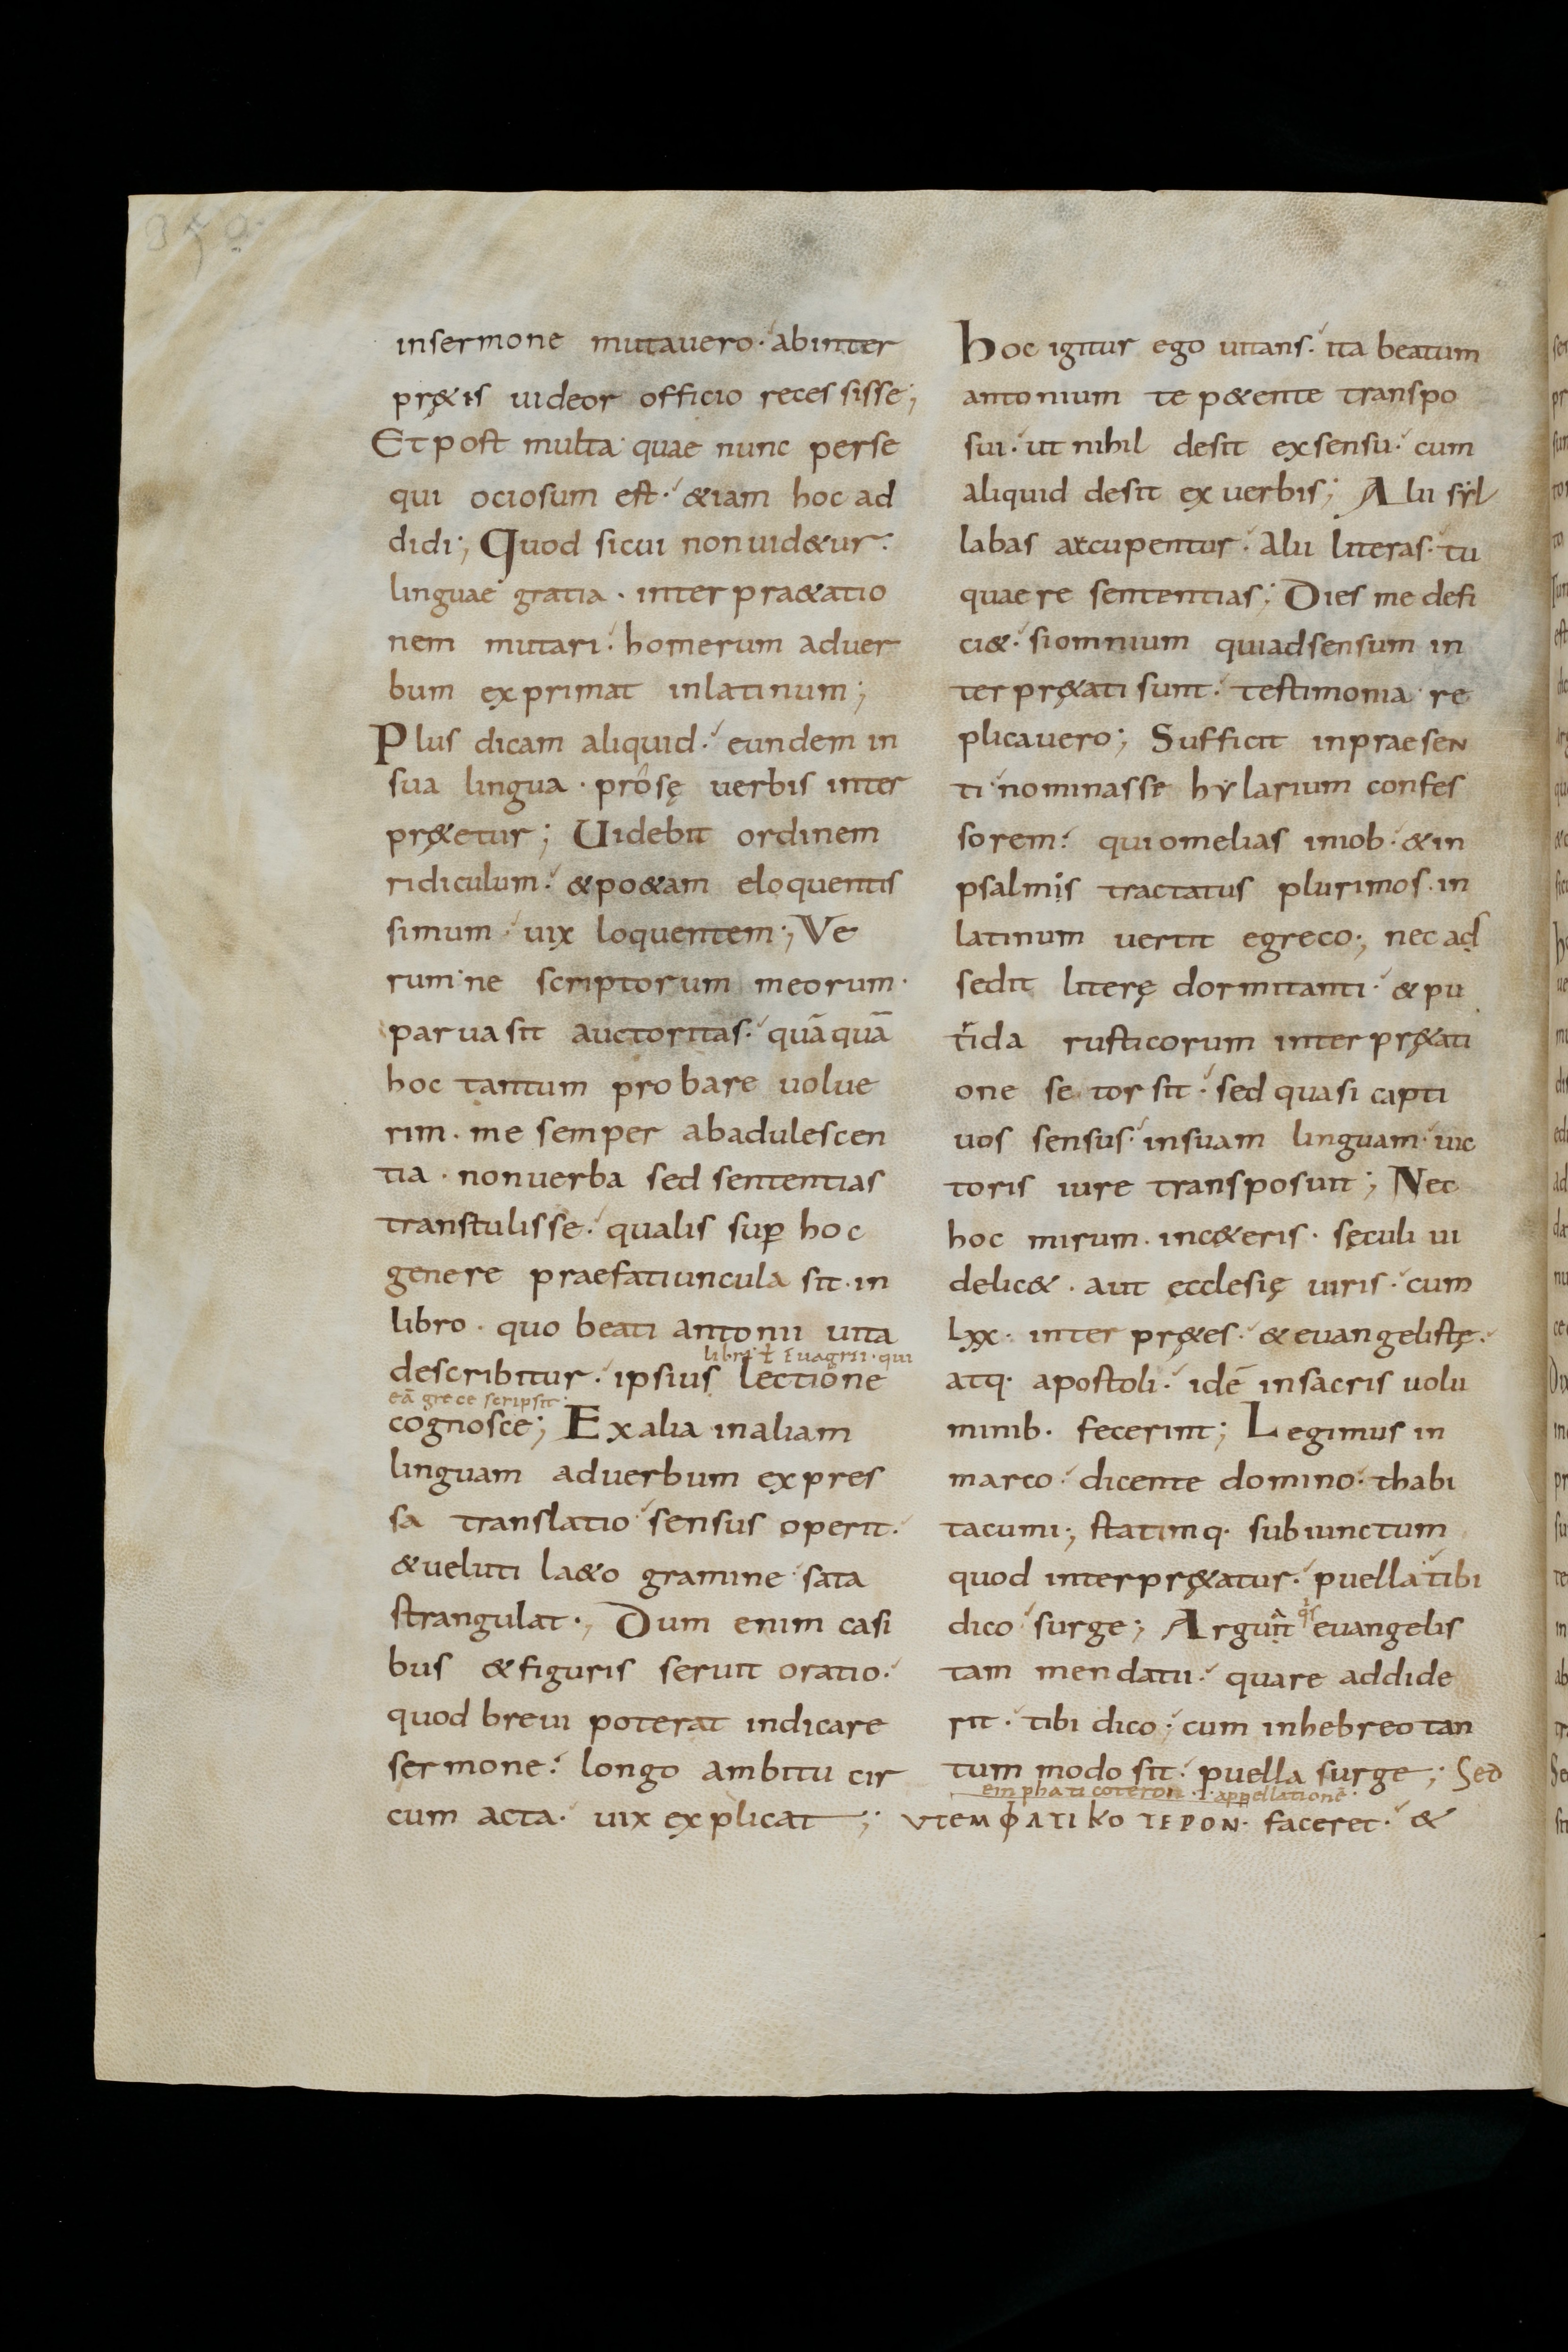 350.
in sermone mutavero· ab inter
pręt&is uideor officio recessisse;
Et post multa· quae nunc perse
qui ociosum est· &iam hoc ad
didi; Quod sicui non uid&ur·
linguae gratia· interpra&atio
nem mutari· homerum ad uer
bum exprimat in latinum;
Plus dicam aliquid· eundem in
sua lingua· prôsę uerbis inter
pr&etur; Uidebit ordinem
ridiculum· & po&am eloquentis
simum· uix loquentem; Ve
rum· ne scriptorum meorum·
parua sit auctoritas· quāquā
hoc tantum probare uolue
rim· me semper ab adulescen
tia· non uerba sed sententias
transtulisse· qualis sup̄ hoc
genere praefatiuncula sit· in
libro· quo beati antonii uita
libri· ł Euagrii· qui
describitur· ipsius lectione
eā grece scripsit·
cognosce; Ex alia in aliam
linguam ad uerbum expres
sa translatio· sensus operit·
& ueluti la&o gramine· sata
strangulat·; Dum enim casi
bus & figuris seruit oratio·
quod breui poterat indicare
sermone· longo ambitu cir
cum acta· uix explicat;
Hoc igitur ego uitans· ita beatum
antonium te p&ente transpo
sui· ut nihil desit ex sensu· cum
aliquid desit ex uerbis; Alii syl
labas aucupentur· Alii literas· tu
quaere sententias; Dies me defi
ci&· si omnium qui ad sensum in
terpr&ati sunt· testimonia re
plicauero; Sufficit in praesen
ti· nominasse hylarium confes
sorem· qui omelias in iob· & in
psalmis tractatus plurimos· in
latinum uertit e greco·; nec ad
sedit literę dormitanti· & pu
tida rusticorum interpr&ati
one se torsit· sed quasi capti
uos sensus· in suam linguam· uic
toris iure transposuit; Nec
hoc mirum· in c&eris· sęculi ui
delic&· aut ecclesię uiris· cum
lxx· interpr&es· & euangelistę·
atq· apostoli· idē in sacris uolu
minib· fecerint; Legimus in
marco· dicente domino· thabi
tacumi; statimq· subiunctum
quod interpr&atur· puella· tibi
dico· surge; Arguat qis euangelis
tam mendatii· quare addide
rit· tibi dico· cum in hebreo tan
tum modo sit· puella surge; Sed
emphaticoteron ·i· appellationē·
VTEMΦΑΤΙΚΟΤΕΡΟΝ· faceret· &